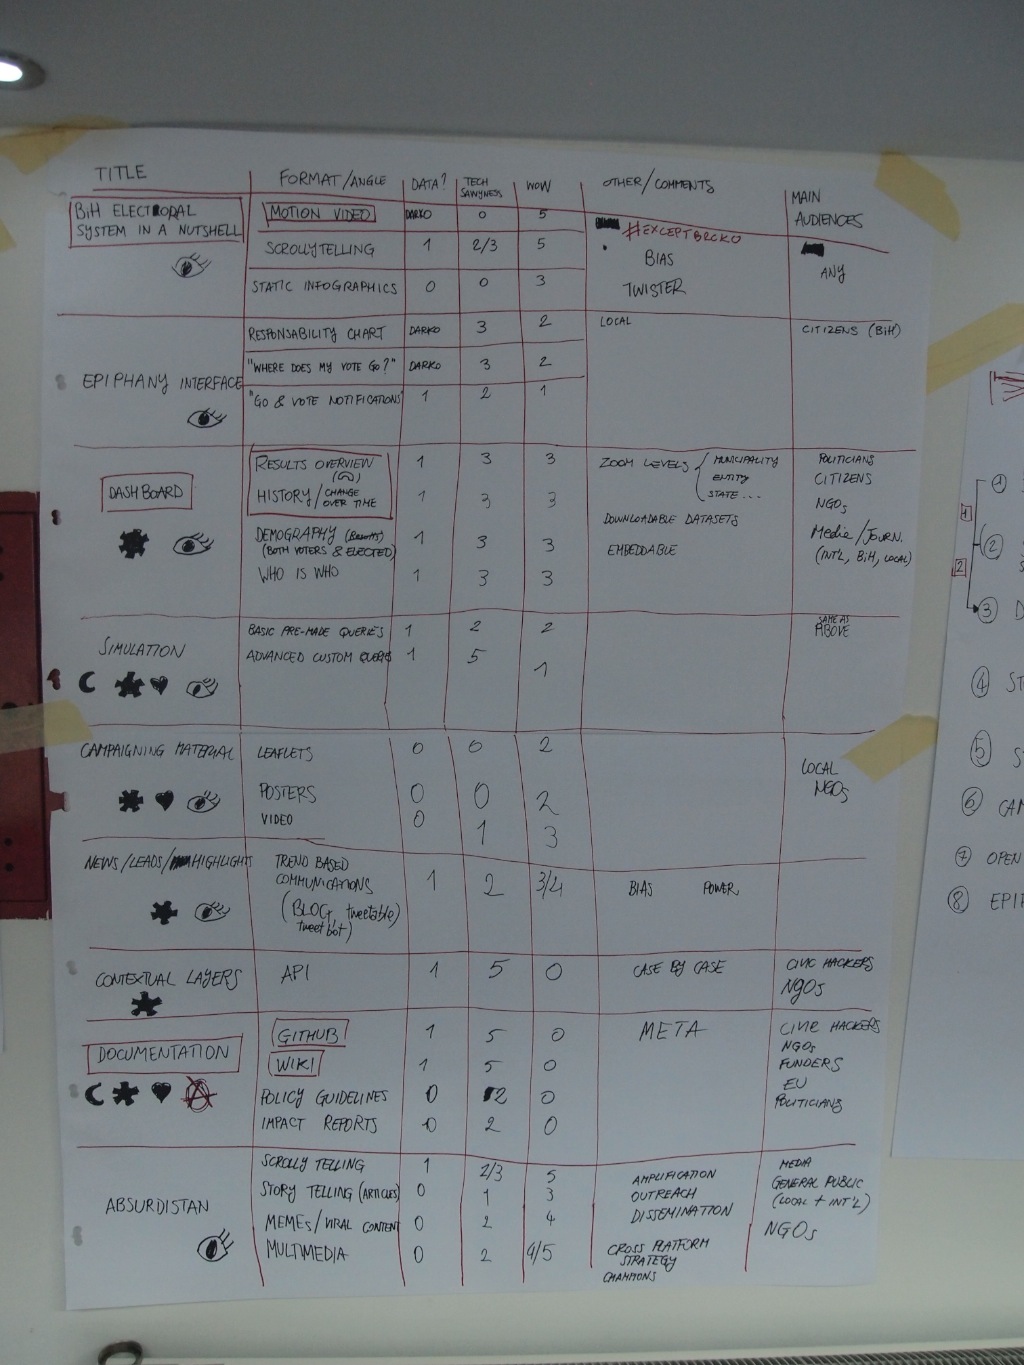 TITLE FORMAT/ANGLE DATA? TECH SAWYNESS WOW OTHER/COMMENTS MAIN AUDIENCES
BiH ELECTORAL SYSTEM IN A NUTSHELL
MOTION VIDEO DARKO 0 5 #EXCEPTBRCKO
SCROLLYTELLING 1 2/3 5 BIAS ANY
STATIC INFOGRAPHICS 0 0 3 TWISTER
EPIPHANY INTERFACE
RESPONSABILITY CHART DARKO 3 2 LOCAL CITIZENS (BiH)
"WHERE DOES MY VOTE GO?" DARKO 3 2
"GO & VOTE NOTIFICATIONS 1 2 1
DASHBOARD
RESULTS OVERVIEW 1 3 3 ZOOM LEVELS MUNICIPALITY POLITICIANS
ENTITY CITIZENS
HISTORY/CHANGE OVER TIME 1 3 3 STATE... NGOs
DOWNLOADABLE DATASETS
DEMOGRAPHY 1 3 3 Media/JOURN.
(BOTH VOTERS & ELECTED) EMBEDDABLE (INT'L, BiH, LOCAL)
WHO IS WHO 1 3 3
SIMULATION
BASIC PRE-MADE QUERIES 1 2 2 SAME AS ABOVE
ADVANCED CUSTOM 1 5 1
CAMPAIGNING MATERIAL LEAFLETS 0 0 2 LOCAL NGOs
POSTERS 0 0 2
VIDEO 0 1 3
NEWS/LEADS/HIGHLIGHTS TREND BASED
COMMUNICATIONS 1 2 3/4 BIAS POWER
(BLOG, tweetable)
tweet bot)
CONTEXTUAL LAYERS API 1 5 0 CASE BY CASE CIVIC HACKERS
NGOs
DOCUMENTATION
GITHUB 1 5 0 META CIVIC HACKERS
NGOs
WIKI 1 5 0 FUNDERS
EU
POLICY GUIDELINES 0 2 0 POLITICIANS
IMPACT REPORTS 0 2 0
ABSURDISTAN
SCROLLY TELLING 1 2/3 5 AMPLIFICATION MEDIA
STORY TELLING (ARTICLES) 0 1 3 OUTREACH GENERAL PUBLIC
(LOCAL + INT'L)
MEMES/VIRAL CONTENT 0 2 4 DISSEMINATION NGOs
MULTIMEDIA 0 2 4/5 CROSS PLATFORM
STRATEGY
CHAMPIONS
1
1
2
2
3 D
4 ST
5 S
6 CAM
7 OPEN
8 EPIP